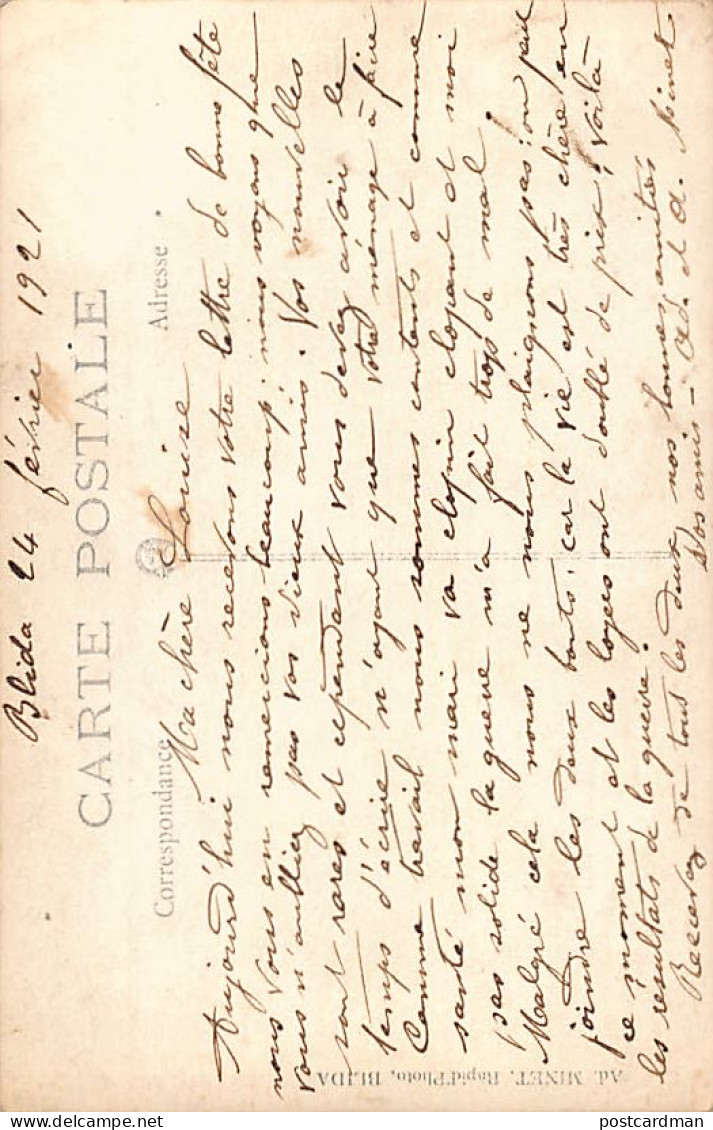 Blida 24 février 1921
CARTE POSTALE
Correspondance
Adresse
Ma chère Louise
Aujourd'hui nous recevons votre lettre de bonne fête
nous vous en remercions beaucoup; nous voyons que
vous n'oubliez pas vos vieux amis. Vos nouvelles
sont rares et cependant vous devez avoir le
temps d'écrire n'ayant que votre ménage à faire
Comme travail nous sommes contents et comme
santé mon mari va clopin clopant et moi
pas solide la guerre m'a fait trop de mal.
Malgré cela nous ne nous plaignons pas; on peut
joindre les deux bouts; car la vie est très chère en
ce moment et les loyers ont doublé de prix; Voilà
les résultats de la guerre.
Recevez de tous les deux nos bonnes amitiés
Vos amis - Ad. et A. Minet
Ad. MINET, Rapid'Photo, BLIDA
delcampe.net
postcardman